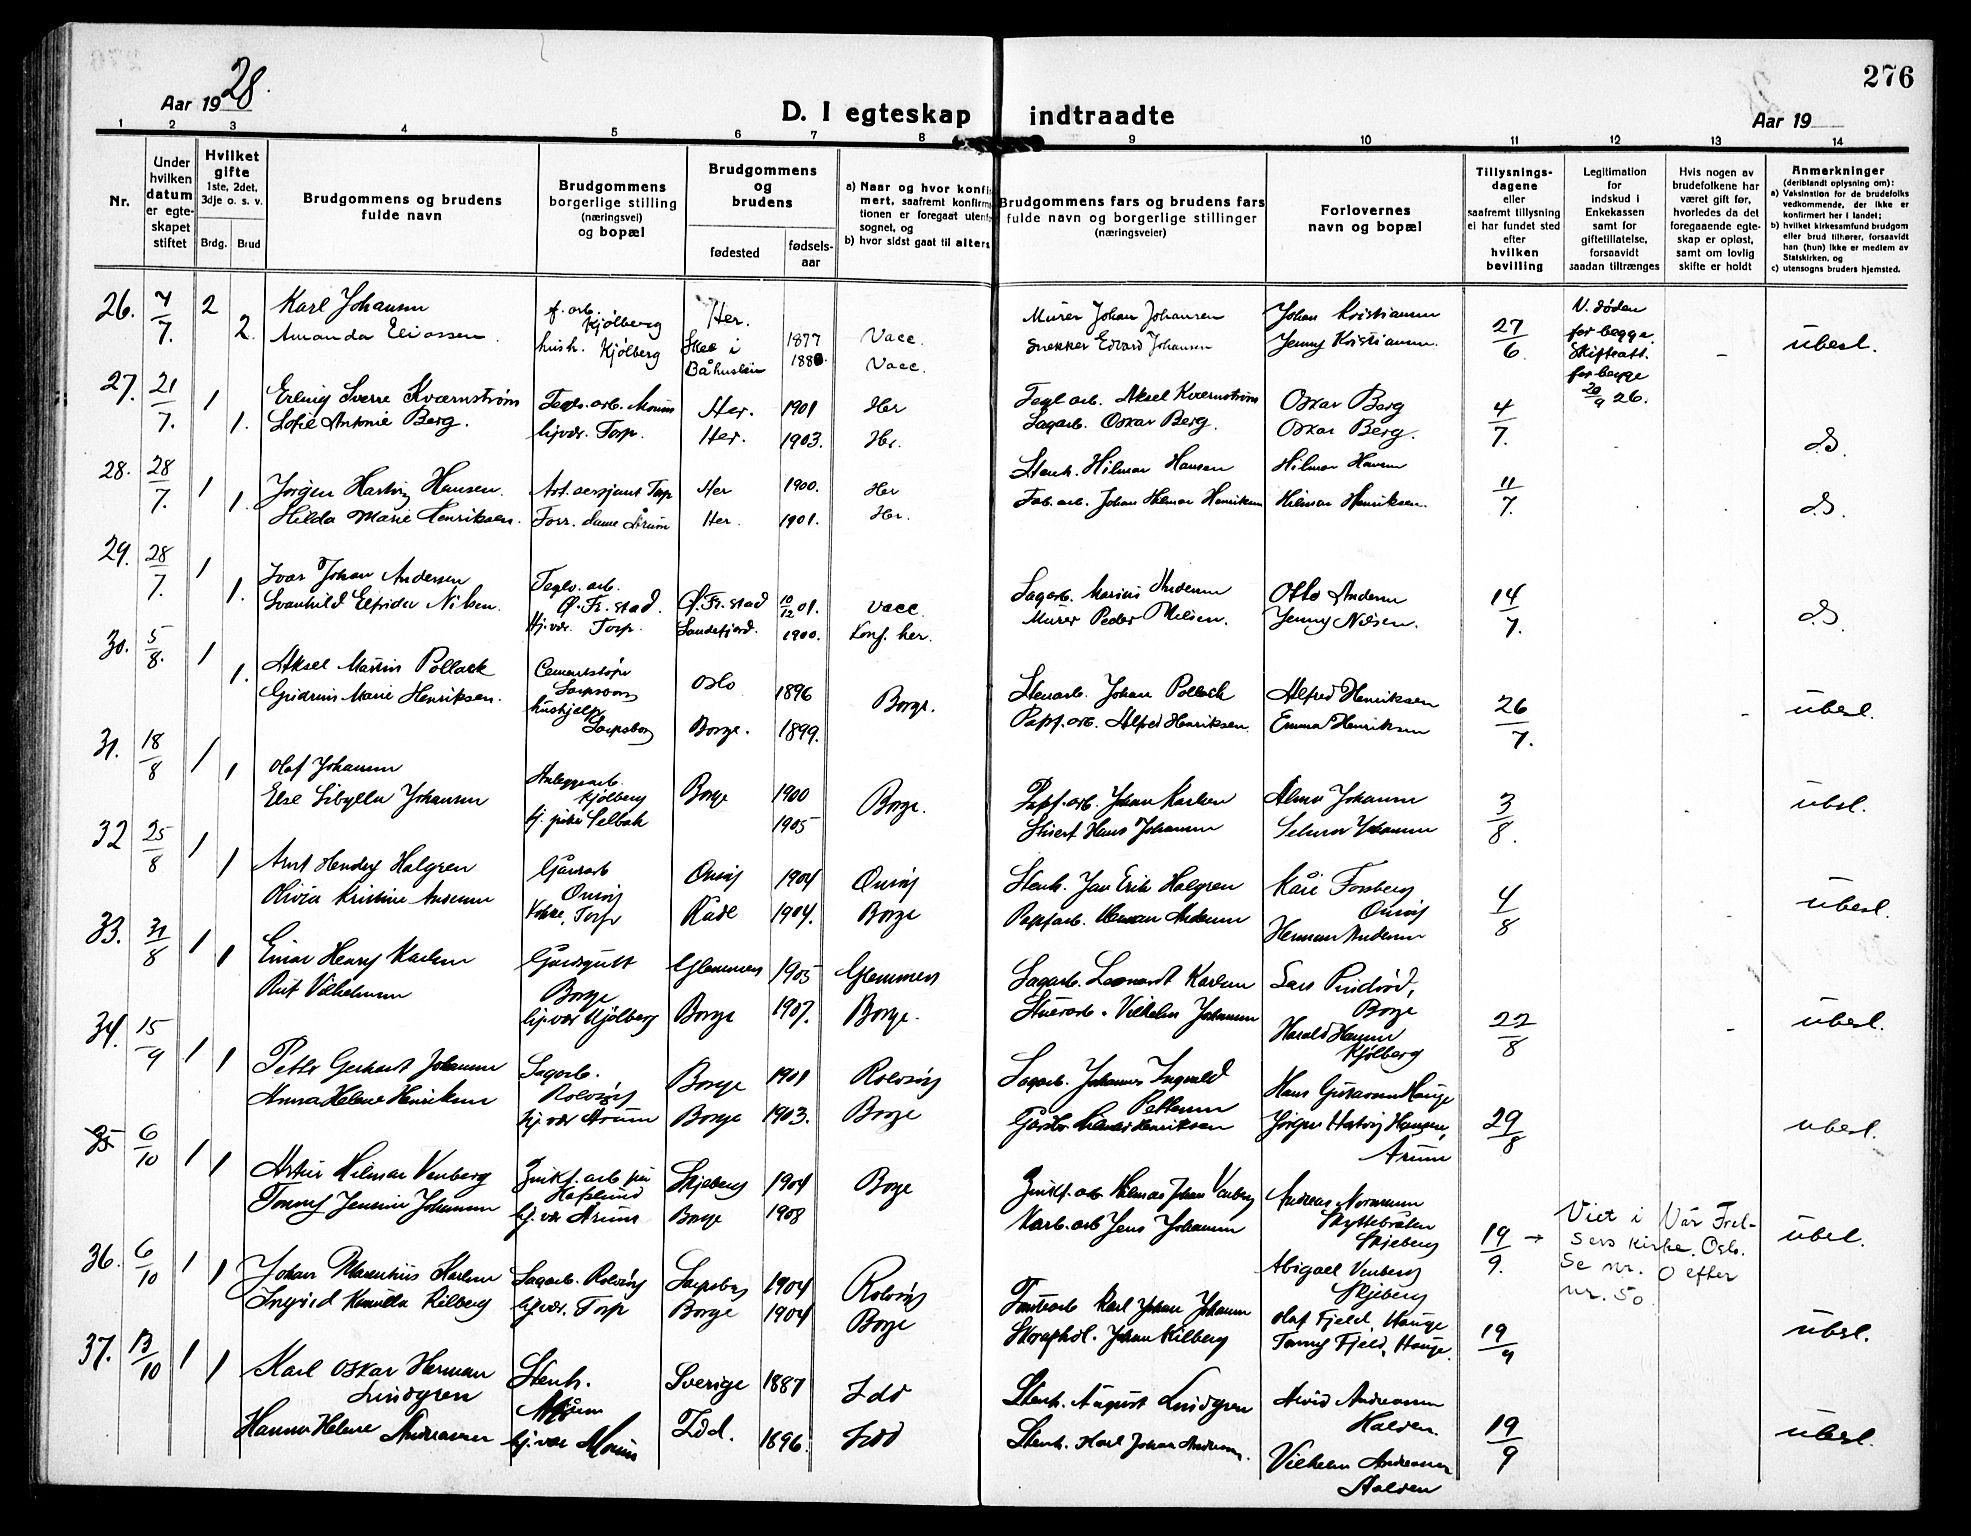 276
Aar 1928.
D. I egteskap indtraadte
Aar 19
1 2 3 4 5 6 7 8 9 10 11 12 13 14
Nr.
Under hvilken datum er egteskapet stiftet
Hvilket gifte
1ste, 2det, 3dje o. s. v.
Brdg. Brud
Brudgommens og brudens fulde navn
Brudgommens borgerlige stilling (næringsvei) og bopæl
Brudgommens og brudens
fødested
fødsels-aar
a) Naar og hvor konfirmert, saafremt konfirmationen er foregaat utenfor sognet, og
b) hvor sidst gaat til alters
Brudgommens fars og brudens fars fulde navn og borgerlige stillinger (næringsveier)
Forlovernes navn og bopæl
Tillysningsdagene eller saafremt tillysning ei har fundet sted efter hvilken bevilling
Legitimation for indskud i Enkekassen samt for giftetillatelse, forsaavidt saadan tiltrænges
Hvis nogen av brudefolkene har været gift før, hvorledes da det foregaaende egteskap er opløst, samt om lovlig skifte er holdt
Anmerkninger
(deriblandt oplysning om):
a) Vaksination for de brudefolks vedkommende, der ikke er konfirmert her i landet;
b) hvilket kirkesamfund brudgom eller brud tilhører, forsaavidt han (hun) ikke er medlem av Statskirken, og
c) utensogns bruders hjemsted.
26. 7/7. 2 Karl Johansen f. arb. Kjølberg Her. 1877 Vacc. Murer Johan Johansen Johan Kristiansen 27/6. V. døden for begge. Skifteatt. for begge 20/9 26. – ubesl.
2. Amanda Eliassen hush. Kjølberg Skee i Båhuslen Vacc. Snekker Edvard Johansen Jenny Kristiansen.
27. 21/7. 1 Erling Sverre Kvernstrøm Teglv. arb. Moum Her. 1901 Her Tegl arb. Aksel Kvernstrøm Oskar Berg 4/7. d.s.
1. Sofie Antonie Berg. hj.vær. Torp. Her. 1903. Her. Sagarb. Oskar Berg. Oskar Berg.
28. 28/7. 1 Jørgen Hartvig Hansen. Art. sersjant Torp Her 1900. Her Stenh. Hilmar Hansen Hilmar Hansen 11/7. d.s.
1. Hilda Marie Henriksen. Forr. dame Årum Her. 1901. Her. Fab. arb. Johan Hilmar Henriksen Hilmar Henriksen.
29. 28/7. 1 Ivar Johan Andersen Teglv. arb. Ø. Fr.stad. Ø. Fr.stad 10/12 01. Vacc. Sagarb. Marius Andersen Otto Andersen 14/7. d.s.
1. Svanhild Elfrida Nilsen. Hj.vær. Torp. Sandefjord. 1900. Konf. her. Murer Peder Nilsen. Jenny Nilsen.
30. 5/8. 1 Aksel Marius Pollack Cementstøper Sarpsborg Oslo 1896 Borge. Stenarb. Johan Pollack Alfred Henriksen 26/7. – ubesl.
1. Gudrun Marie Henriksen. hushjelp Sarpsborg Borge. 1899. Papf. arb. Alfred Henriksen. Emma Henriksen
31. 18/8 1 Olaf Johansen Anleggsarb. Kjølberg Borge 1900 Borge. Papf. arb. Johan Karlsen Alma Johansen 3/8. ubesl.
1 Else Sibylla Johansen Selbak 1905 Hans Johansen Johansen
32 25/8 1 Arnt Hendry Halgren Gårdsarb Onsøy Onsøy 1904 Onsøy Stenh. Jan Erik Halgren Kåre Forsberg Onsøy 4/8 ubesl.
1 Olivia Kristine Andersen Kokke. Torp Råde 1904. Borge Papfarb. Herman Andersen Herman Andersen
33. 31/8 1 Einar Henry Karlsen Gårdsgutt Borge Glemmen 1905 Glemmen Sagarb. Leonardt Karlsen Lars Pindsrød, Borge 22/8 – ubesl.
1 Rut Vilhelmsen hj.vær Kjølberg Borge 1907. Borge. Vilhelm Johansen Harald Hansen Kjølberg
34. 15/9 1 Petter Gerhart Johansen Sagarb. Rolvsøy Borge 1901 Rolvsøy Sagarb. Johannes Ingvald Pettersen Hans Gustavsen Hauge 29/8 ubesl.
1 Anna Helene Henriksen hj. vær Årum Borge 1903. Borge Hilmar Henriksen Jørgen Hartvig Hansen, Årum
35 6/10 1 Artur Hilmar Venberg Zinkf. arb. Hafslund Skjeberg 1904 Borge Zinkf. arb. Hilmar Johan Venberg Andreas Normann Skyttebråten Skjeberg 19/9. → Viet i Vår Frelsers kirke. Oslo. Se nr. 0 efter nr. 50. ubesl.
1 Tommy Jensine Johansen hj. vær Årum Borge 1908 Karb. arb Jens Johansen Abigael Venberg Skjeberg
36. 6/10 1 Johan Marentius Karlsen Sagarb. Rolvsøy Sarpsborg 1904 Rolvsøy Karl Johan Johansen Olaf Fjeld, Hauge 19/9 ubesl.
1 Ingrid Kamilla Kilberg hj.vær. Torp Borge 1904 Borge Johan Kilberg Tommy Fjeld, Hauge.
37. 13/10 1 Karl Oskar Herman Lindgren Stenh. Sverige 1887 Idd Stenh. August Lindgren Arvid Andreassen Halden. 19/9 ubesl.
1 Hanna Helene Andreassen hj.vær Moum Idd. 1896. Idd Stenh. Karl Johan Andreassen. Vilhelm Andreassen Halden